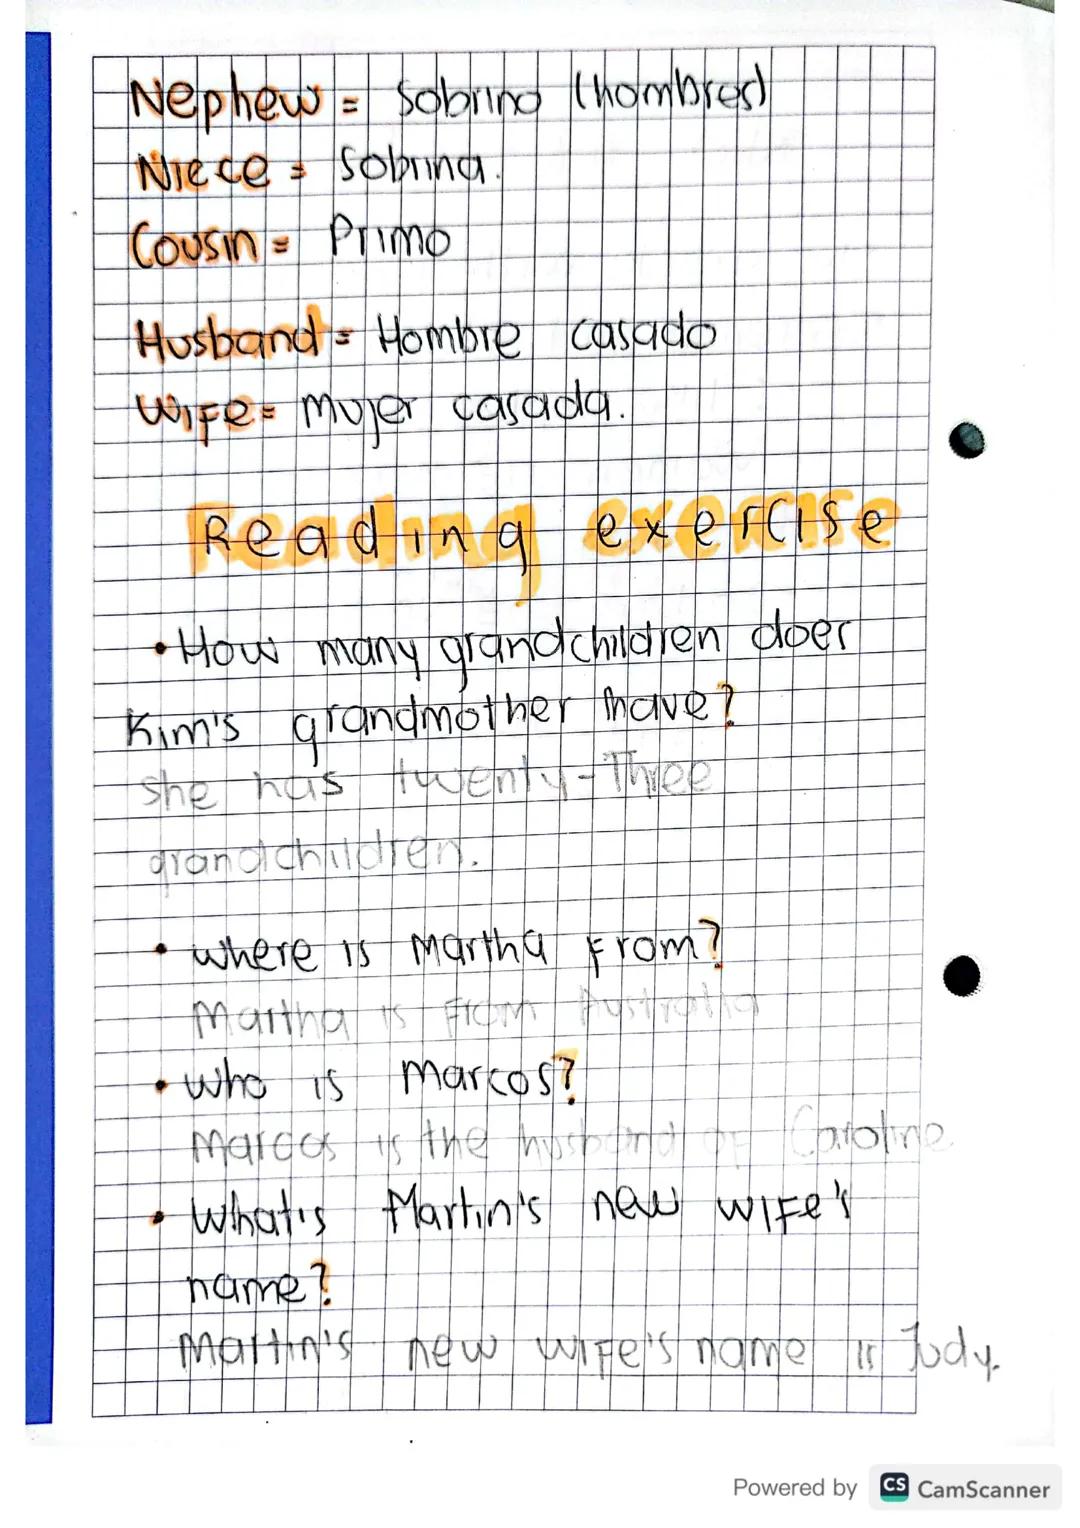 Nephew = Sobrino (hombres)
Niece = Sobrina.
Cousin = Primo
Husband = Hombre casado
Wife = Mujer casada.
Reading exercise
• How many grandchildren does
Kim's grandmother have?
she has twenty-Three
grandchildren.
• where is Martha From?
Martha is From Australia
• who is Marcos?
Marcos is the husband of Caroline
• What's Martin's new wife's
name?
Martin's new wife's name is Judy.
Powered by CS CamScanner